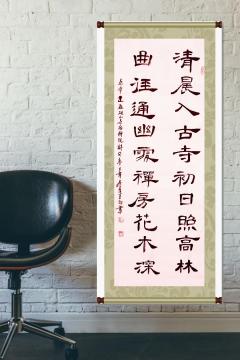 清晨入古寺初日照高林
曲径通幽處禪房花木深